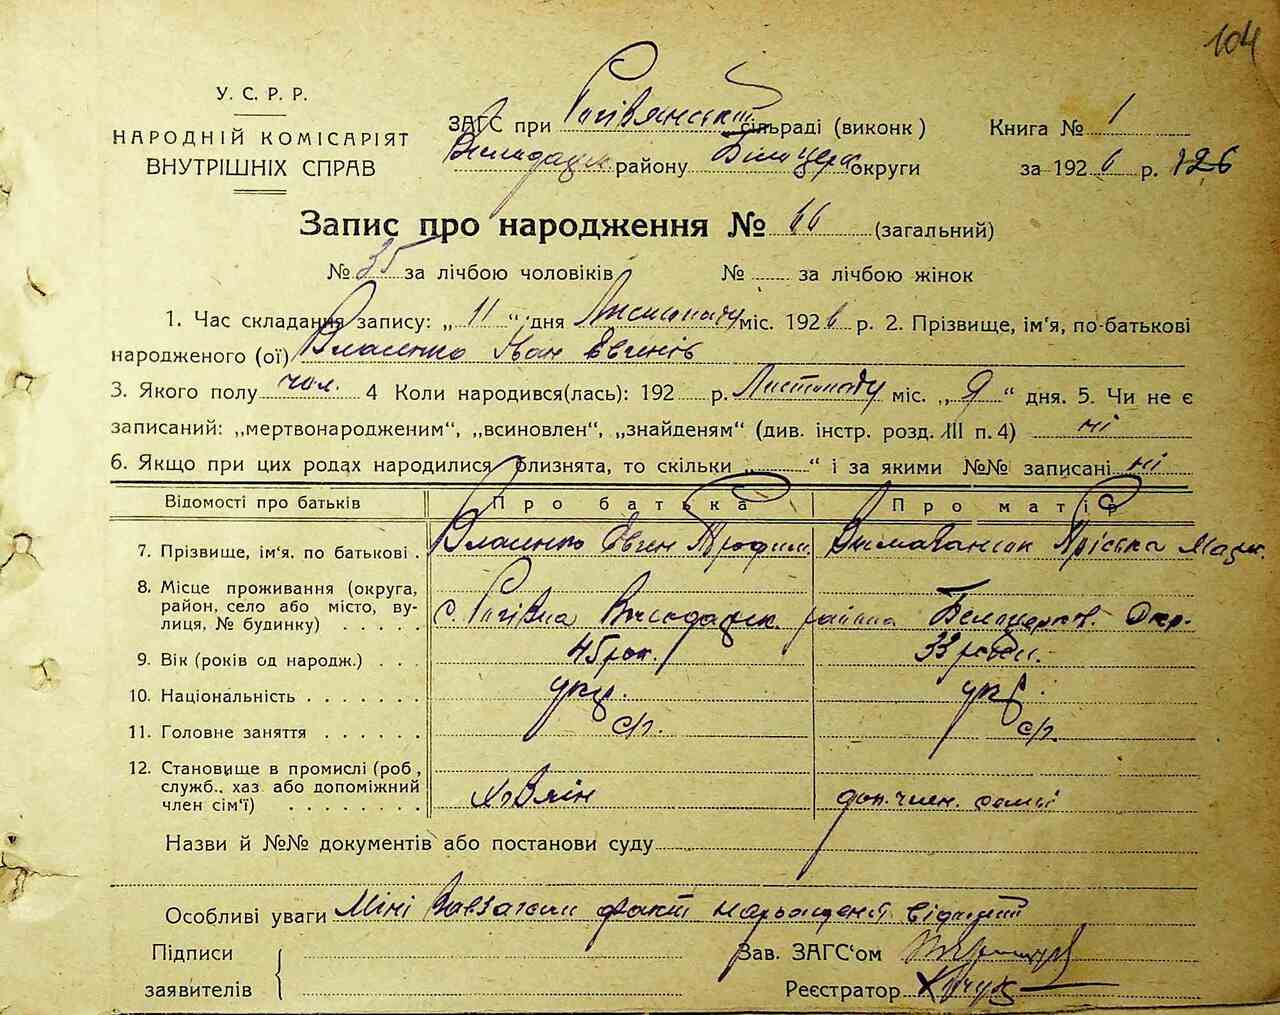 104
У. С. Р. Р.
НАРОДНІЙ КОМІСАРІЯТ
ВНУТРІШНІХ СПРАВ
ЗАГС при сільраді (виконк)
району Білоцерк округи
Книга № 1
за 1926 р. 126
Запис про народження № 66 (загальний)
№ 35 за лічбою чоловіків № за лічбою жінок
1. Час складання запису: „ 11 “ дня Листопаду міс. 1926 р. 2. Прізвище, ім'я, по-батькові
народженого (ої) Власенко Іван Евгенів
3. Якого полу чол. 4 Коли народився(лась): 192 р. Листопаду міс. „ 9 “ дня. 5. Чи не є
записаний: „мертвонародженим“, „всиновлен“, „знайденям“ (див. інстр. розд. III п. 4) ні
6. Якщо при цих родах народилися близнята, то скільки „ “ і за якими №№ записані ні
Відомості про батьків Про батька Про матір
7. Прізвище, ім'я. по батькові . Власенко Євген Трофим. Пріська
8. Місце проживання (округа,
район, село або місто, ву-
лиця, № будинку) . . . . . с. району Білоцерков. Окр.
9. Вік (років од народж.) . . . 45 рок. 33 роки.
10. Національність . . . . . . . укр. укр.
11. Головне заняття . . . . . . с/г. с/г.
12. Становище в промислі (роб,
служб., хаз або допоміжний
член сім'ї) . . . . . . . . хазяїн доп. член. семії
Назви й №№ документів або постанови суду
Особливі уваги факт
Підписи
заявителів
Зав. ЗАГС'ом
Реєстратор